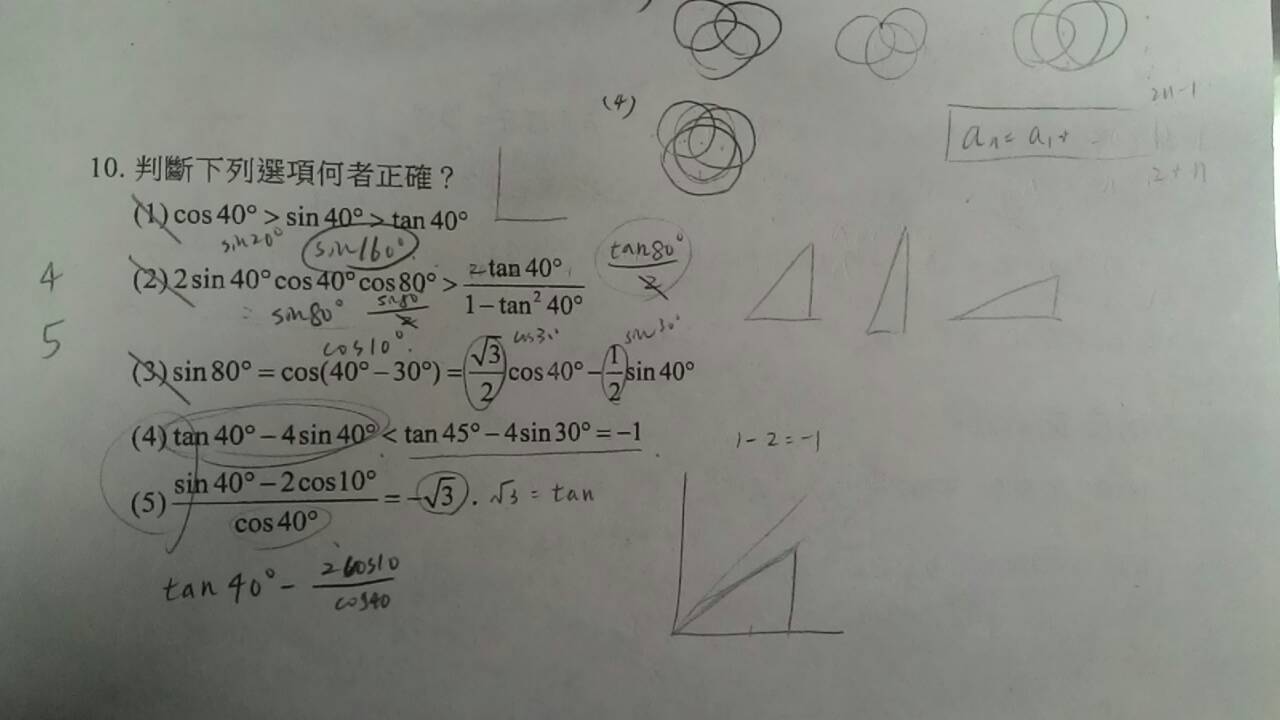 (4)
2n-1
aₙ = a₁ +
2+n
10. 判斷下列選項何者正確？
(1) cos 40° > sin 40° > tan 40°
sin20° sin160° tan80°/2
4 (2) 2 sin 40° cos 40° cos 80° > 2 tan 40° / 1 − tan² 40°
= sin80° sin80/2
5 cos10° cos30° sin30°
(3) sin 80° = cos(40° − 30°) = √3/2 cos 40° − 1/2 sin 40°
(4) tan 40° − 4 sin 40° < tan 45° − 4 sin 30° = −1 1-2=-1
(5) sin 40° − 2 cos 10° / cos 40° = −√3 . √3 = tan
tan 40° − 2cos10/cos40